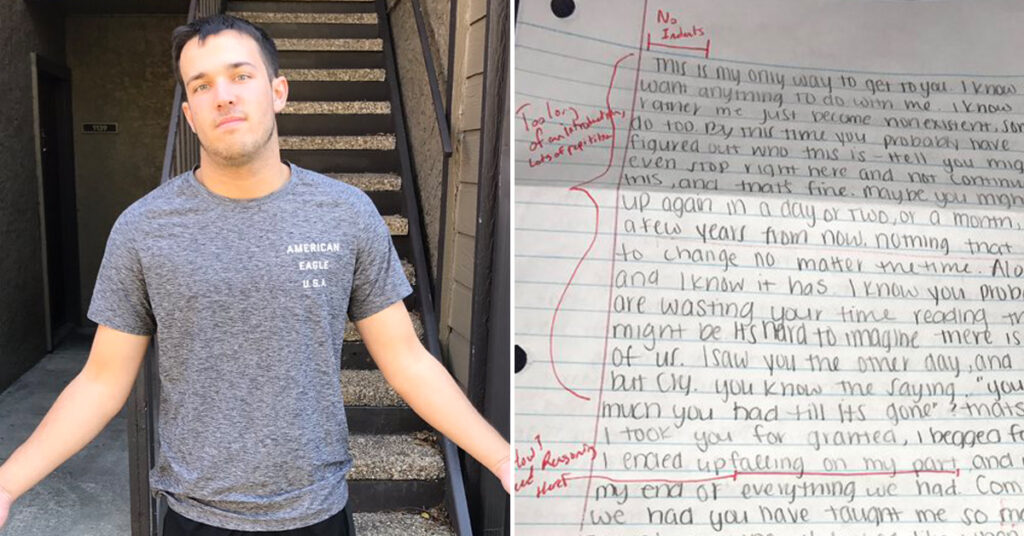 1139
AMERICAN
EAGLE
U.S.A
No
Indents
Too long
of an introduction,
lots of repetition
This is my only way to get to you. I know
want anything to do with me. I know
rather me just become nonexistent, 
do too. By this time you probably have
figured out who this is - Hell you 
even stop right here and not 
this, and thats fine. maybe you 
up again in a day or two, or a month,
a few years from now. nothing that
to change no matter the time. 
and I know it has I know you 
are wasting your time reading 
might be its hard to imagine there is
of us. I saw you the other day, and
but cry. you know the saying, "you
much you had till its gone"? thats
I took you for granted, I begged
I ended up falling on my part, and
my end of everything we had. 
we had you have taught me so
Reasoning